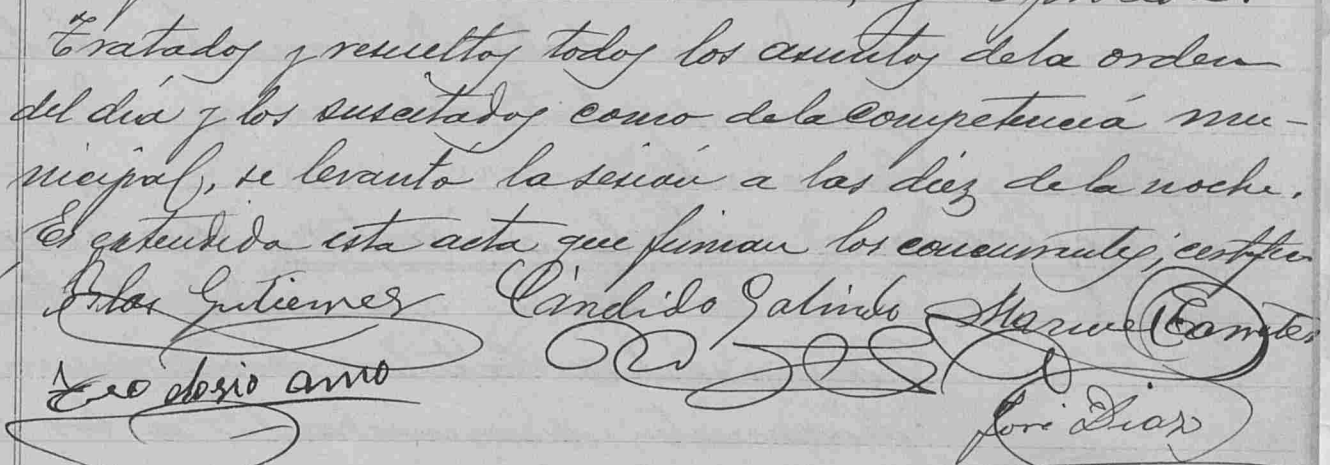 Tratados y resueltos todos los asuntos dela orden
del dia y los suscitados como dela competencia mu-
nicipal, se levanto la sesión a las diez de la noche.
Es extendida esta acta que firman los concurrentes, certifico
Blas Gutierrez Cándido Galindo Manuel
Teodosio amo
José Diaz